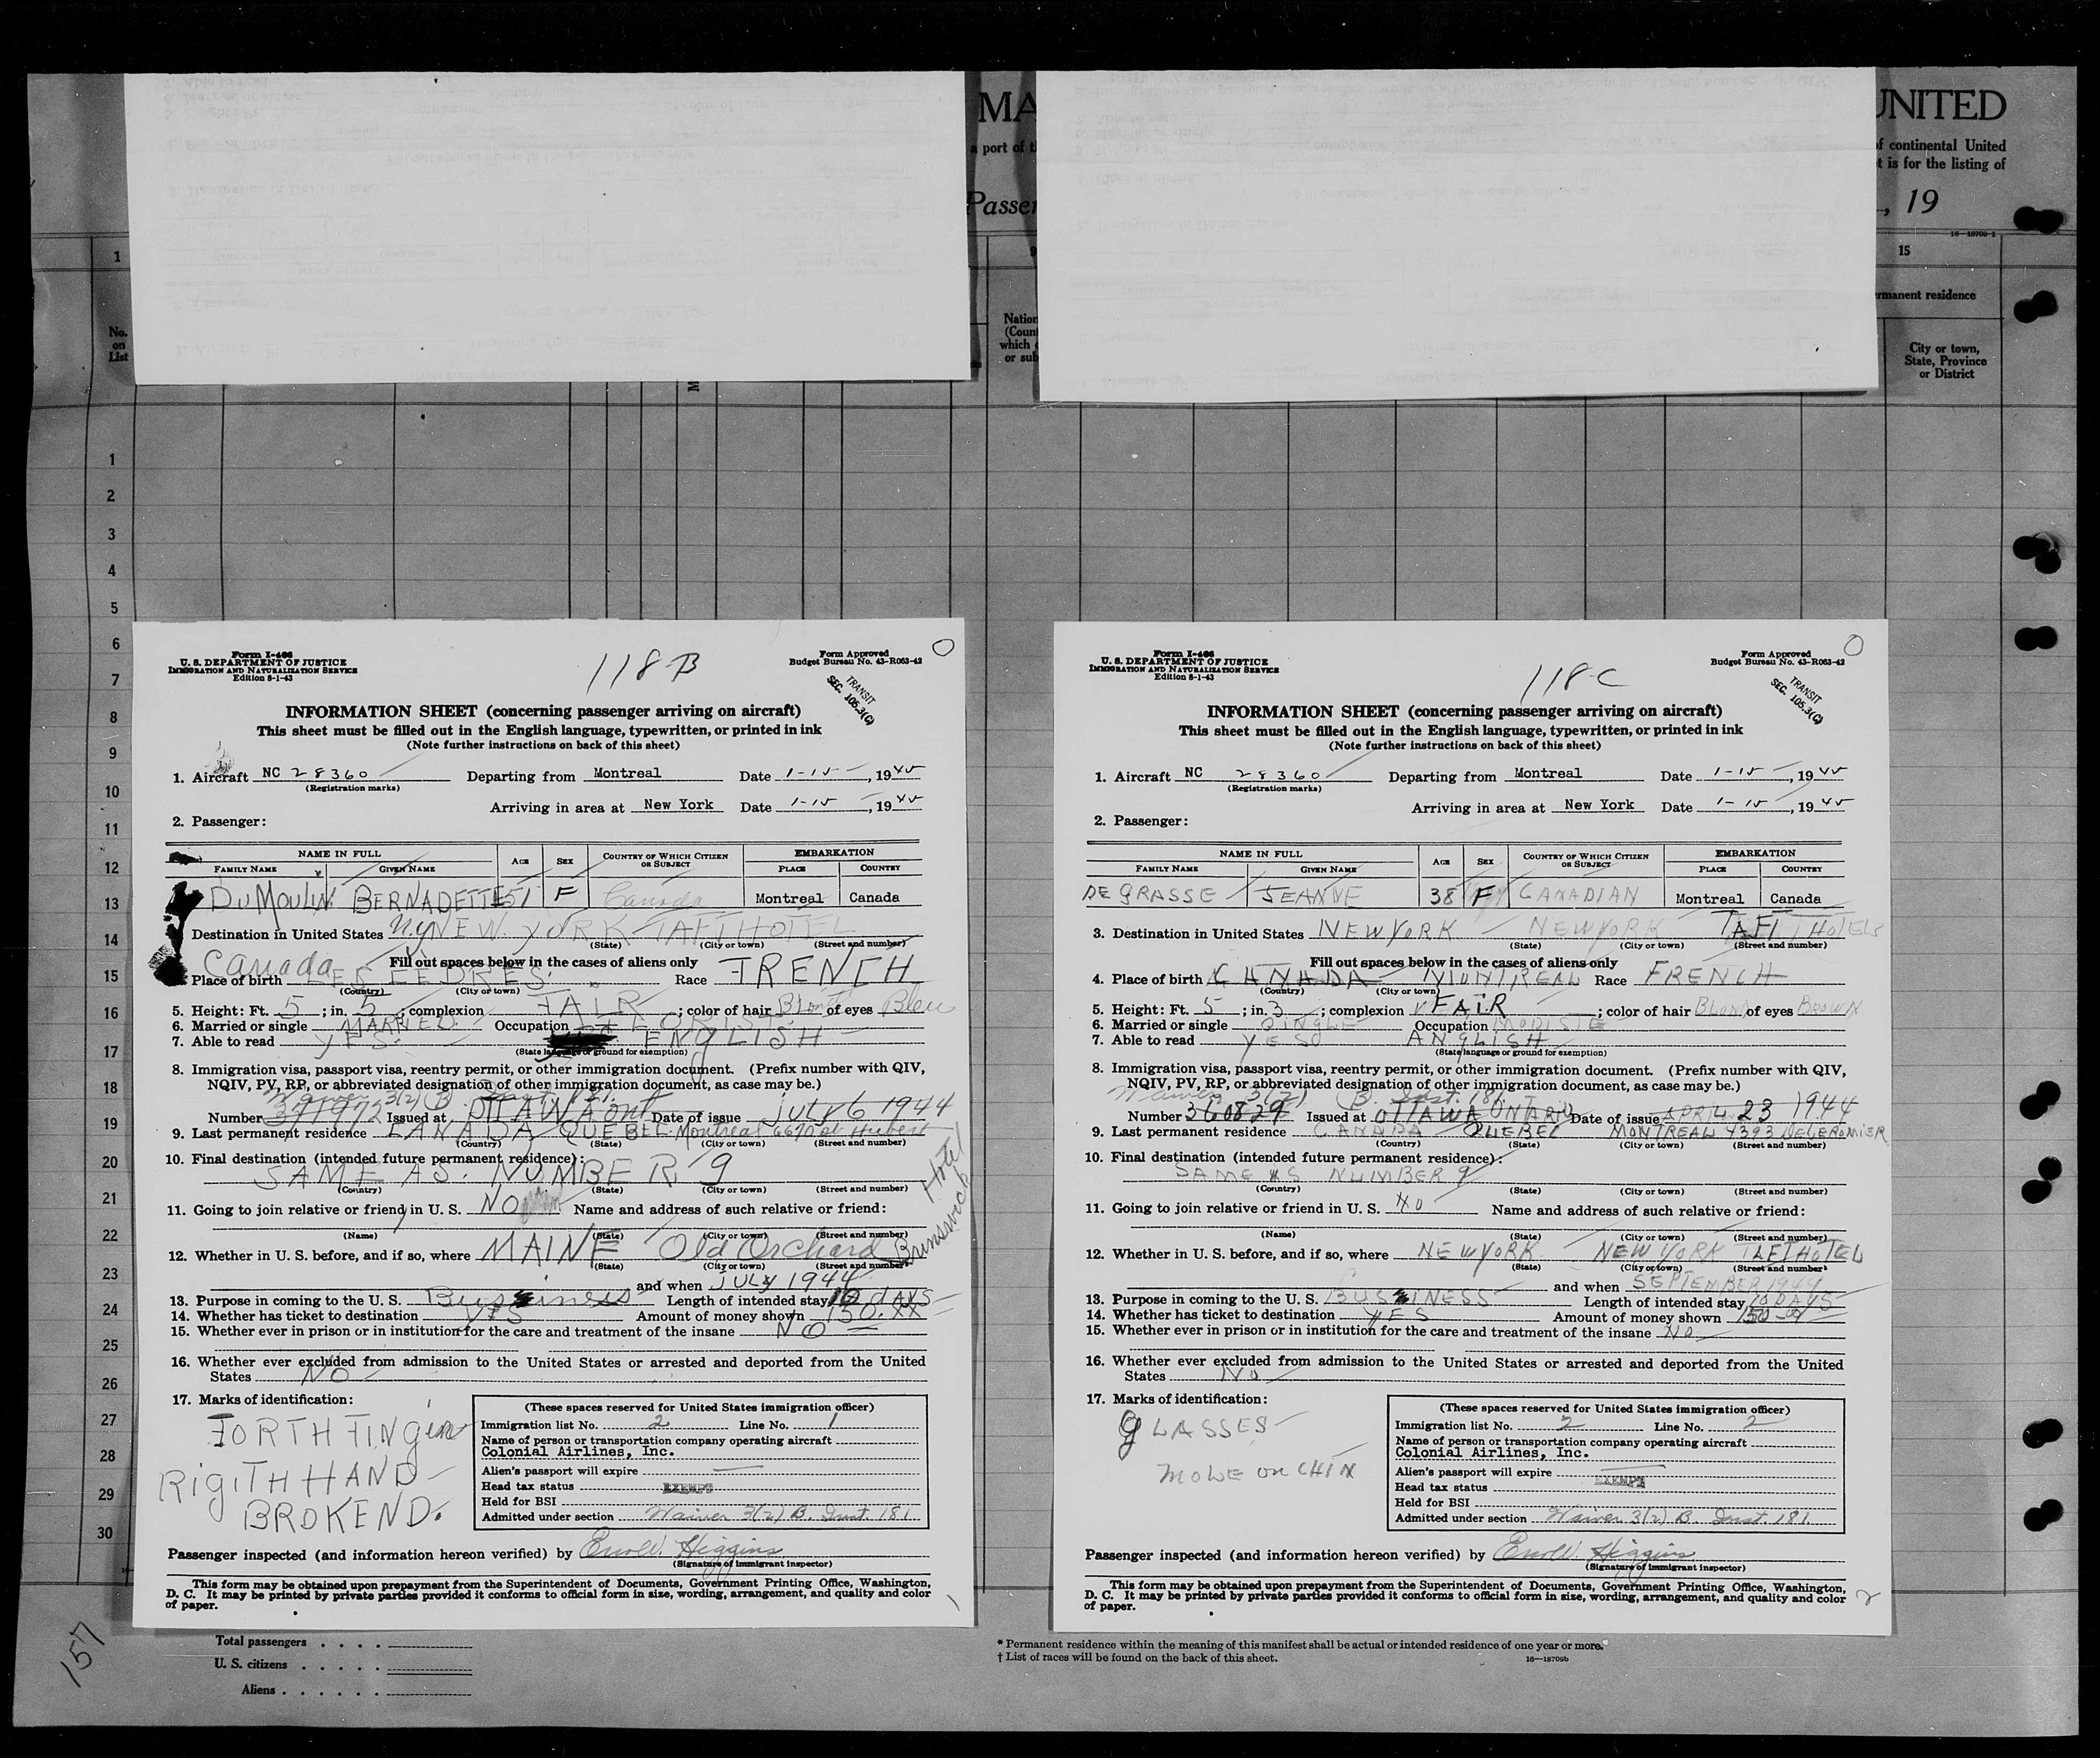 MA
UNITED
a port of t
of continental United
t is for the listing of
Passen
, 19
16—18709-1
1
9
15
rmanent residence
No.
on
List
Nation
(Coun
which c
or sub
City or town,
State, Province
or District
1
2
3
4
5
6
7
8
9
10
11
12
13
14
15
16
17
18
19
20
21
22
23
24
25
26
27
28
29
30
Form I-466
U. S. DEPARTMENT OF JUSTICE
IMMIGRATION AND NATURALIZATION SERVICE
Edition 8-1-43
118-B
Form Approved
Budget Bureau No. 43-R063-42
TRANSIT
SEC. 105.3(C)
INFORMATION SHEET (concerning passenger arriving on aircraft)
This sheet must be filled out in the English language, typewritten, or printed in ink
(Note further instructions on back of this sheet)
1. Aircraft NC 28360 Departing from Montreal Date 1-15, 1945
(Registration marks)
Arriving in area at New York Date 1-15, 1945
2. Passenger:
NAME IN FULL AGE SEX COUNTRY OF WHICH CITIZEN OR SUBJECT EMBARKATION
FAMILY NAME GIVEN NAME PLACE COUNTRY
DUMOULIN BERNADETTE 51 F Canada Montreal Canada
Destination in United States N.Y. NEW YORK TAFT HOTEL
(State) (City or town) (Street and number)
Fill out spaces below in the cases of aliens only
Place of birth Canada LES CEDRES Race FRENCH
(Country) (City or town)
5. Height: Ft. 5; in. 5; complexion FAIR; color of hair Blond of eyes Bleu
6. Married or single MARRIED Occupation
7. Able to read YES. ENGLISH
(State language or ground for exemption)
8. Immigration visa, passport visa, reentry permit, or other immigration document. (Prefix number with QIV,
NQIV, PV, RP, or abbreviated designation of other immigration document, as case may be.)
Waiver 3(2) B. Inst. 181.
Number 371972 Issued at OTTAWA Ont Date of issue july 6 1944
9. Last permanent residence CANADA QUEBEC Montreal 6670 St Hubert
(Country) (State) (City or town) (Street and number)
10. Final destination (intended future permanent residence):
SAME AS. NUMBER 9
(Country) (State) (City or town) (Street and number)
11. Going to join relative or friend in U. S. NO Name and address of such relative or friend:
(Name) (State) (City or town) (Street and number)
12. Whether in U. S. before, and if so, where MAINE Old Orchard Hotel Brunswick
(State) (City or town) (Street and number)
and when JULY 1944
13. Purpose in coming to the U. S. Bussiness Length of intended stay 10 dAYS
14. Whether has ticket to destination YES Amount of money shown 150.xx
15. Whether ever in prison or in institution for the care and treatment of the insane NO
16. Whether ever excluded from admission to the United States or arrested and deported from the United
States NO
17. Marks of identification:
FORTH FINger
RIGITH HAND
BROKEND.
(These spaces reserved for United States immigration officer)
Immigration list No. 2 Line No. 1
Name of person or transportation company operating aircraft
Colonial Airlines, Inc.
Alien's passport will expire
Head tax status EXEMPT
Held for BSI
Admitted under section Waiver 3(2) B. Inst. 181.
Passenger inspected (and information hereon verified) by Errol W. Higgins
(Signature of immigrant inspector)
This form may be obtained upon prepayment from the Superintendent of Documents, Government Printing Office, Washington,
D. C. It may be printed by private parties provided it conforms to official form in size, wording, arrangement, and quality and color
of paper.
Form I-466
U. S. DEPARTMENT OF JUSTICE
IMMIGRATION AND NATURALIZATION SERVICE
Edition 8-1-43
118-C
Form Approved
Budget Bureau No. 43-R063-42
TRANSIT
SEC. 105.3(C)
INFORMATION SHEET (concerning passenger arriving on aircraft)
This sheet must be filled out in the English language, typewritten, or printed in ink
(Note further instructions on back of this sheet)
1. Aircraft NC 28360 Departing from Montreal Date 1-15, 1945
(Registration marks)
Arriving in area at New York Date 1-15, 1945
2. Passenger:
NAME IN FULL AGE SEX COUNTRY OF WHICH CITIZEN OR SUBJECT EMBARKATION
FAMILY NAME GIVEN NAME PLACE COUNTRY
DE GRASSE JEANNE 38 F CANADIAN Montreal Canada
3. Destination in United States NEW YORK NEW YORK TAFT HOTELS
(State) (City or town) (Street and number)
Fill out spaces below in the cases of aliens only
4. Place of birth CANADA MONTREAL Race FRENCH
(Country) (City or town)
5. Height: Ft. 5; in. 3; complexion FAIR; color of hair BLOND of eyes BROWN
6. Married or single SINGLE Occupation MODISTE
7. Able to read YES ANGLISH
(State language or ground for exemption)
8. Immigration visa, passport visa, reentry permit, or other immigration document. (Prefix number with QIV,
NQIV, PV, RP, or abbreviated designation of other immigration document, as case may be.)
Waiver 3(2) B. Inst. 181.
Number 360829 Issued at OTTAWA ONTARIO Date of issue APRIL 23 1944
9. Last permanent residence CANADA QUEBEC MONTREAL 4393
(Country) (State) (City or town) (Street and number)
10. Final destination (intended future permanent residence):
SAME AS NUMBER 9
(Country) (State) (City or town) (Street and number)
11. Going to join relative or friend in U. S. NO Name and address of such relative or friend:
(Name) (State) (City or town) (Street and number)
12. Whether in U. S. before, and if so, where NEW YORK NEW YORK
(State) (City or town) (Street and number)
and when SEPTEMBER 1944
13. Purpose in coming to the U. S. BUSINESS Length of intended stay 10 DAYS
14. Whether has ticket to destination YES Amount of money shown
15. Whether ever in prison or in institution for the care and treatment of the insane NO
16. Whether ever excluded from admission to the United States or arrested and deported from the United
States NO
17. Marks of identification:
GLASSES
MOLE ON CHIN
(These spaces reserved for United States immigration officer)
Immigration list No. 2 Line No. 2
Name of person or transportation company operating aircraft
Colonial Airlines, Inc.
Alien's passport will expire
Head tax status EXEMPT
Held for BSI
Admitted under section Waiver 3(2) B. Inst. 181.
Passenger inspected (and information hereon verified) by Errol W. Higgins
(Signature of immigrant inspector)
This form may be obtained upon prepayment from the Superintendent of Documents, Government Printing Office, Washington,
D. C. It may be printed by private parties provided it conforms to official form in size, wording, arrangement, and quality and color
of paper.
2
157
Total passengers . . . .
U. S. citizens . . . . .
Aliens . . . . . .
* Permanent residence within the meaning of this manifest shall be actual or intended residence of one year or more.
† List of races will be found on the back of this sheet.
16—18709b